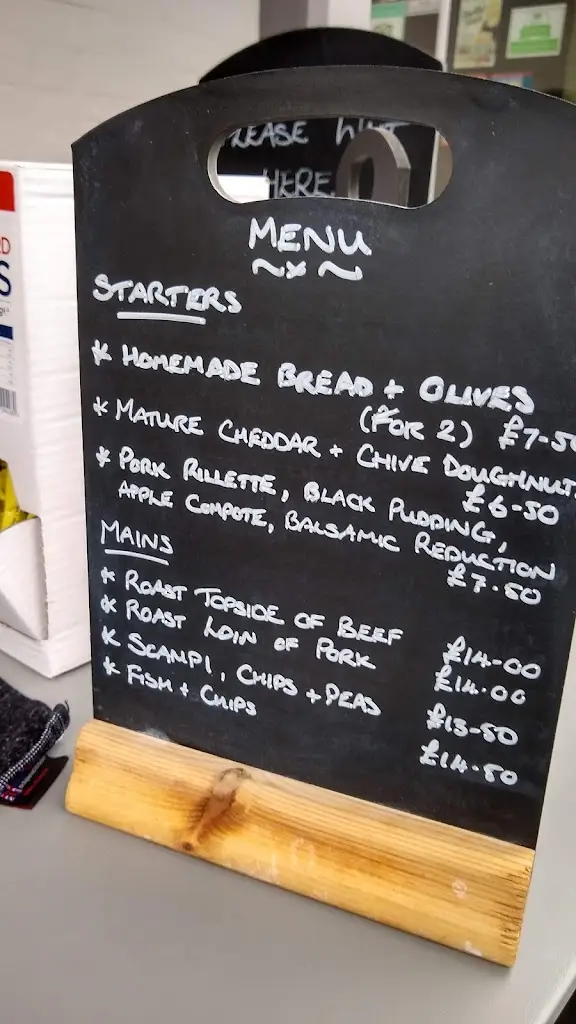 PLEASE WAIT
HERE.
MENU
~x~
STARTERS
* HOMEMADE BREAD + OLIVES
(FOR 2) £7-50
* MATURE CHEDDAR + CHIVE DOUGHNUT
£6-50
* PORK RILLETTE, BLACK PUDDING,
APPLE COMPOTE, BALSAMIC REDUCTION
£7.50
MAINS
* ROAST TOPSIDE OF BEEF £14-00
* ROAST LOIN OF PORK £14.00
* SCAMPI, CHIPS + PEAS £13-50
* FISH + CHIPS £14.50